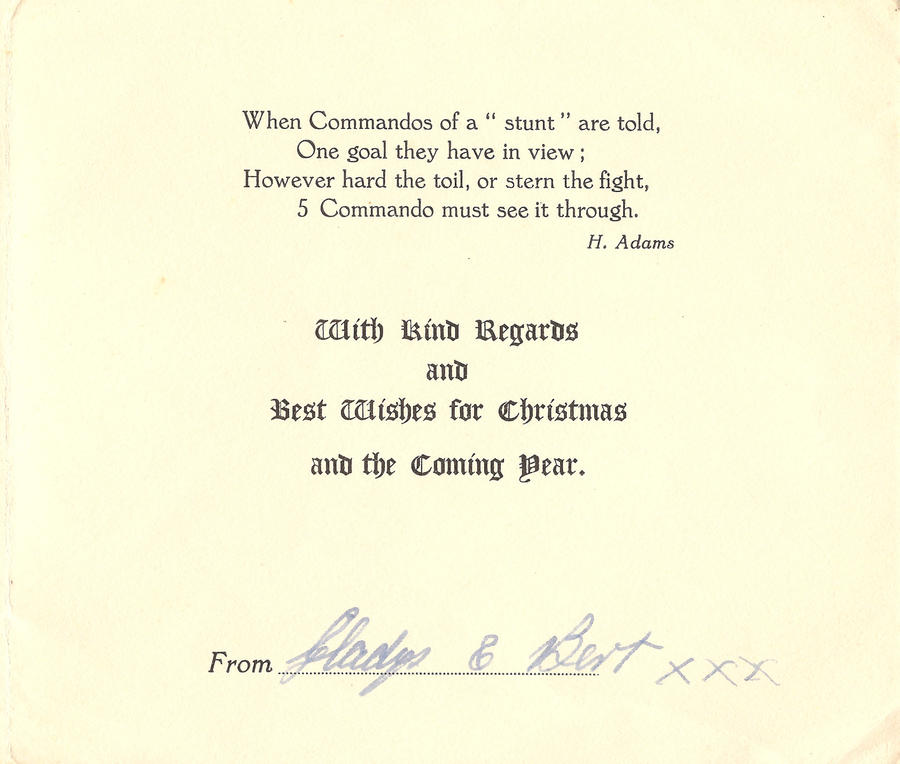 When Commandos of a “ stunt ” are told,
One goal they have in view ;
However hard the toil, or stern the fight,
5 Commando must see it through.
H. Adams
With Kind Regards
and
Best Wishes for Christmas
and the Coming Year.
From Gladys & Bert xxx